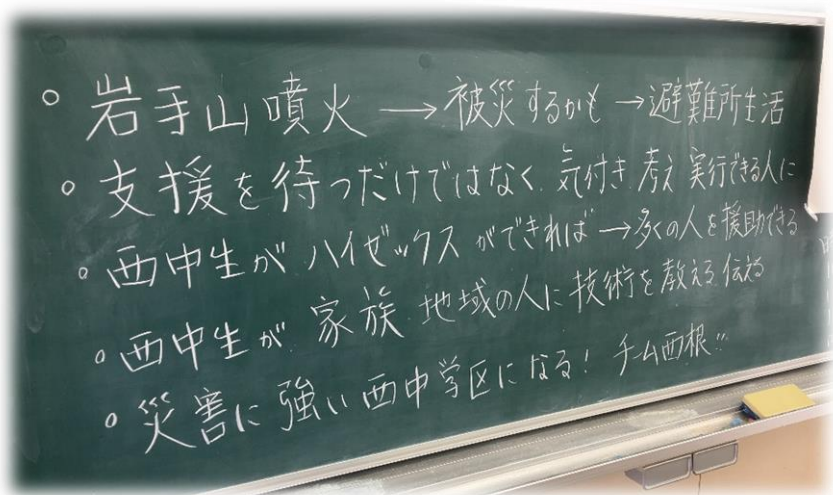 。岩手山噴火 → 被災するかも → 避難所生活
。支援を待つだけではなく 気付き 考え 実行できる人に
。西中生が ハイゼックス ができれば → 多くの人を援助できる
。西中生が 家族 地域の人に技術を教える 伝える
。災害に強い西中学区になる! チーム西根!!